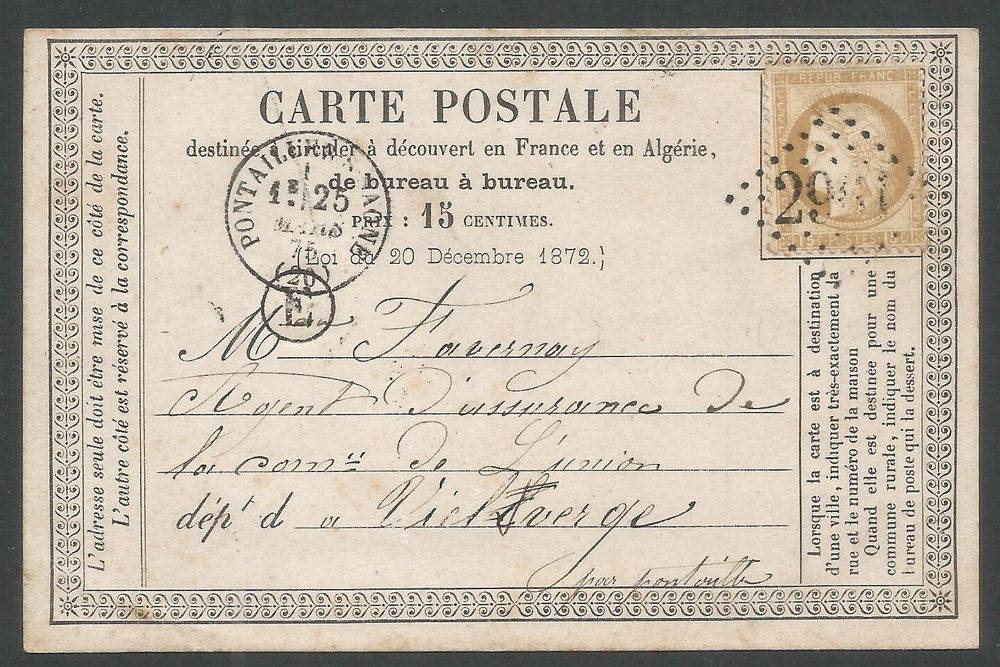 CARTE POSTALE
destinée à circuler à découvert en France et en Algérie,
de bureau à bureau.
PRIX : 15 CENTIMES.
(Loi du 20 Décembre 1872.)
L'adresse seule doit être mise de ce côté de la carte.
L'autre côté est réservé à la correspondance.
REPUB FRANC
15 POSTES 15
PONTAILLER S SAONE
1E 25
MARS
75
(20)
E
Mr Favernay
Agent D'assurance De
la comie De L'union
dépt d a Vielverge
par pontaille
Lorsque la carte est à destination
d'une ville, indiquer très-exactement la
rue et le numéro de la maison
Quand elle est destinée pour une
commune rurale, indiquer le nom du
bureau de poste qui la dessert.